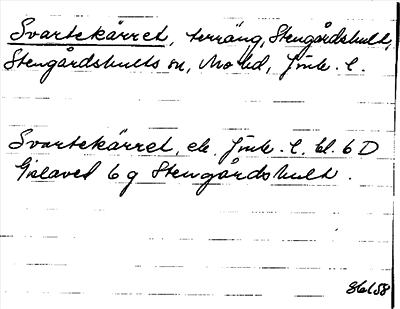 Svartekärret, terräng, Stengårdshult,
Stengårdshults sn, Mo hd, Jönk. l.
Svartekärret, ek. Jönk. l. bl. 6 D
Gislaved 6 g Stengårdshult.